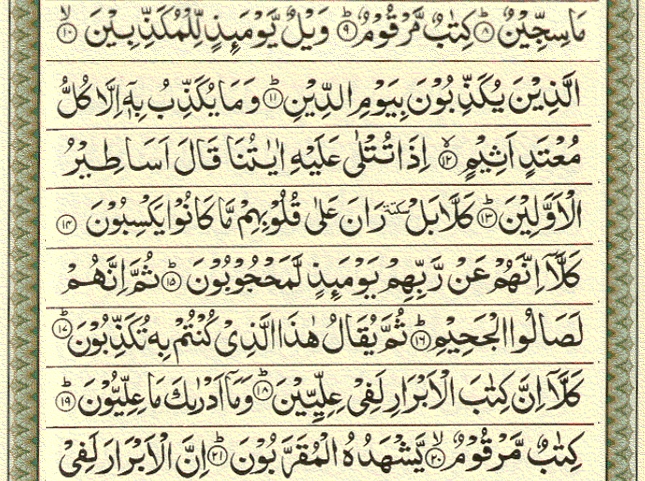 مَا سِجِّيْنٌ ؕ﴿۸﴾ كِتٰبٌ مَّرْقُوْمٌ ؕ﴿۹﴾ وَيْلٌ يَّوْمَئِذٍ لِّلْمُكَذِّبِيْنَ ۙ﴿۱۰﴾
الَّذِيْنَ يُكَذِّبُوْنَ بِيَوْمِ الدِّيْنِ ؕ﴿۱۱﴾ وَمَا يُكَذِّبُ بِهٖۤ اِلَّا كُلُّ
مُعْتَدٍ اَثِيْمٍ ۙ﴿۱۲﴾ اِذَا تُتْلٰى عَلَيْهِ اٰيٰتُنَا قَالَ اَسَاطِيْرُ
الْاَوَّلِيْنَ ؕ﴿۱۳﴾ كَلَّا بَلْ سكتة رَانَ عَلٰى قُلُوْبِهِمْ مَّا كَانُوْا يَكْسِبُوْنَ ﴿۱۴﴾
كَلَّاۤ اِنَّهُمْ عَنْ رَّبِّهِمْ يَوْمَئِذٍ لَّمَحْجُوْبُوْنَ ؕ﴿۱۵﴾ ثُمَّ اِنَّهُمْ
لَصَالُوا الْجَحِيْمِ ؕ﴿۱۶﴾ ثُمَّ يُقَالُ هٰذَا الَّذِيْ كُنْتُمْ بِهٖ تُكَذِّبُوْنَ ؕ﴿۱۷﴾
كَلَّاۤ اِنَّ كِتٰبَ الْاَبْرَارِ لَفِيْ عِلِّيِّيْنَ ؕ﴿۱۸﴾ وَمَاۤ اَدْرٰىكَ مَا عِلِّيُّوْنَ ؕ﴿۱۹﴾
كِتٰبٌ مَّرْقُوْمٌ ۙ﴿۲۰﴾ يَّشْهَدُهُ الْمُقَرَّبُوْنَ ؕ﴿۲۱﴾ اِنَّ الْاَبْرَارَ لَفِيْ